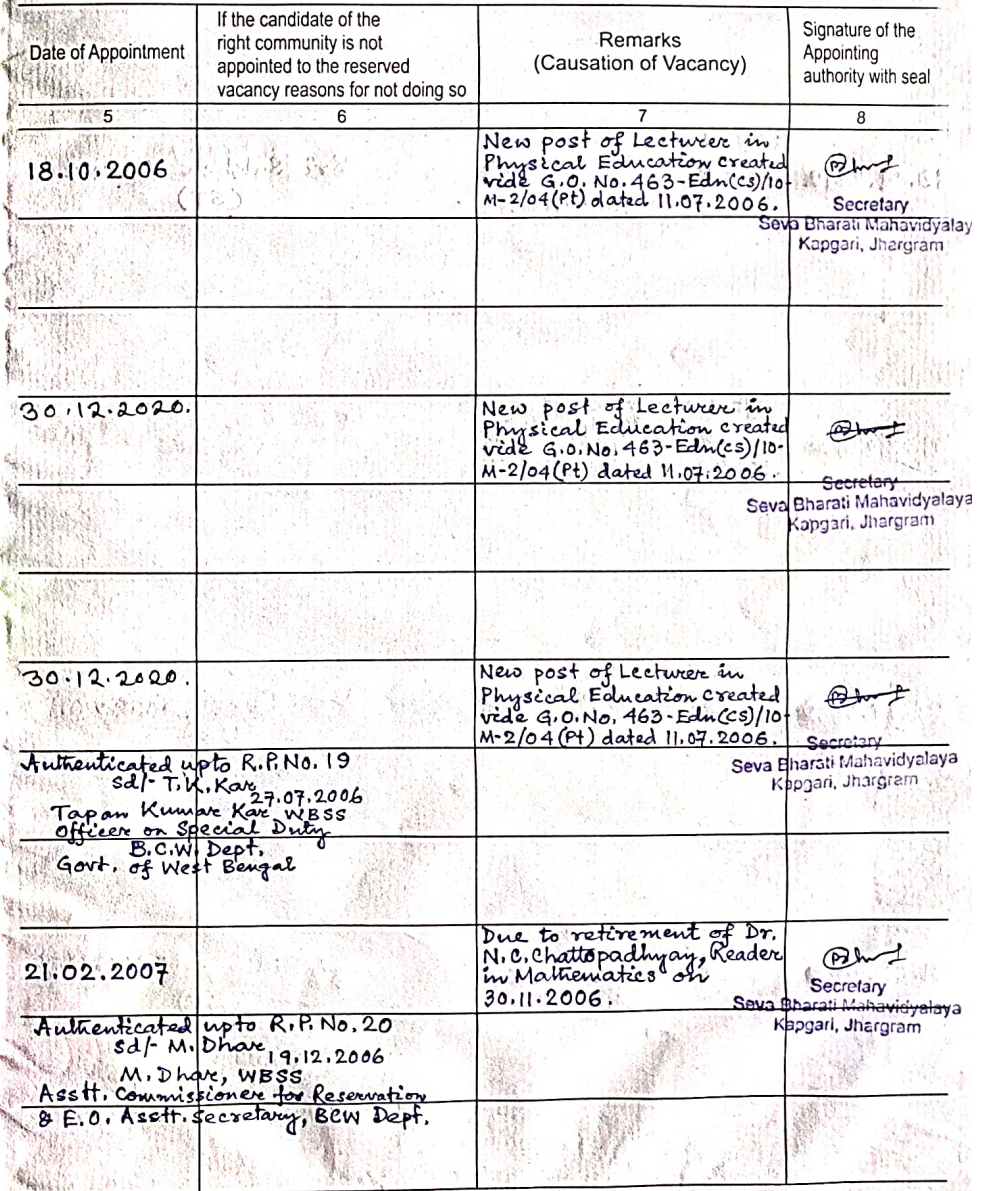 Date of Appointment
If the candidate of the
right community is not
appointed to the reserved
vacancy reasons for not doing so
Remarks
(Causation of Vacancy)
Signature of the
Appointing
authority with seal
5
6
7
8
18.10.2006
New post of Lecturer in
Physical Education created
vide G.O. No. 463-Edn(CS)/10-
M-2/04(Pt) dated 11.07.2006.
Secretary
Seva Bharati Mahavidyalay
Kapgari, Jhargram
30.12.2020.
New post of Lecturer in
Physical Education created
vide G.O. No. 463-Edn(CS)/10-
M-2/04(Pt) dated 11.07.2006.
Secretary
Seva Bharati Mahavidyalaya
Kapgari, Jhargram
30.12.2020.
New post of Lecturer in
Physical Education created
vide G.O. No. 463-Edn(CS)/10-
M-2/04(Pt) dated 11.07.2006.
Secretary
Seva Bharati Mahavidyalaya
Kapgari, Jhargram
Authenticated upto R.P. No. 19
sd/- T.K. Kar
27.07.2006
Tapan Kumar Kar WBSS
Officer on Special Duty
B.C.W. Dept.
Govt. of West Bengal
21.02.2007
Due to retirement of Dr.
N.C. Chattopadhyay, Reader
in Mathematics on
30.11.2006.
Secretary
Seva Bharati Mahavidyalaya
Kapgari, Jhargram
Authenticated upto R.P. No. 20
sd/- M. Dhar
19.12.2006
M. Dhar, WBSS
Asstt. Commissioner for Reservation
& E.O. Asstt. Secretary, BCW Dept.